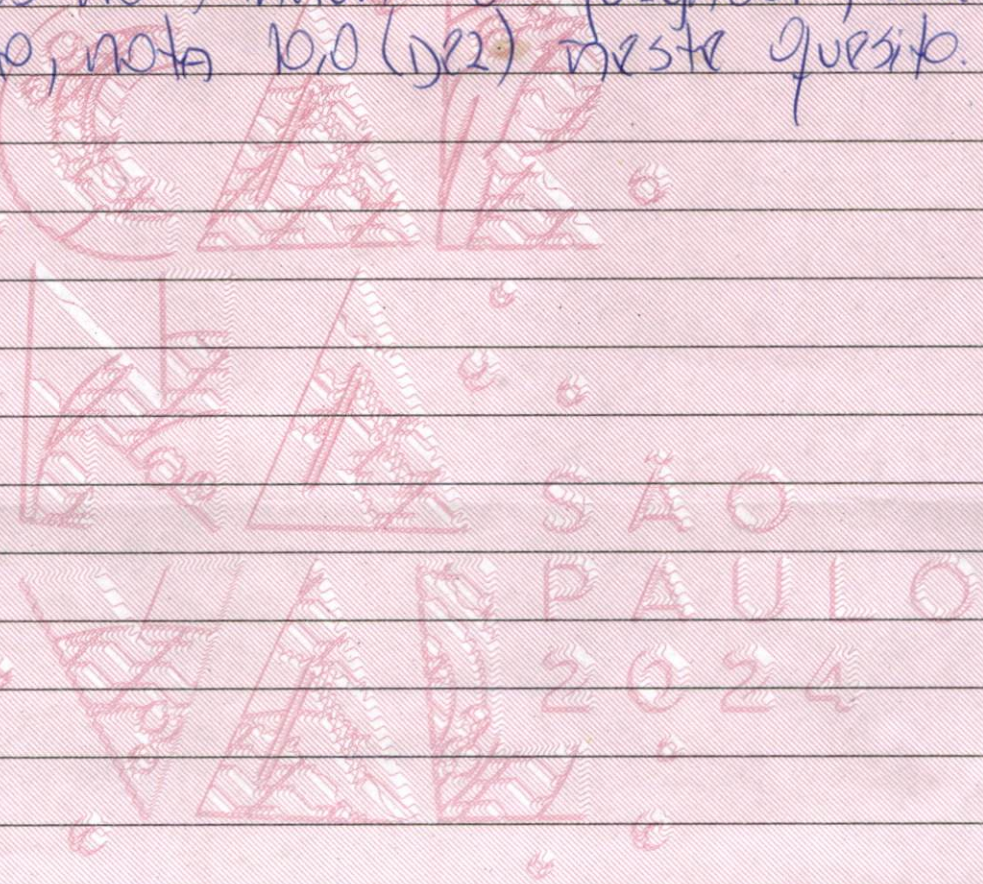 nota 10,0 (DEZ) neste quesito.
CAR
NA SÃO
VAL PAULO
2024